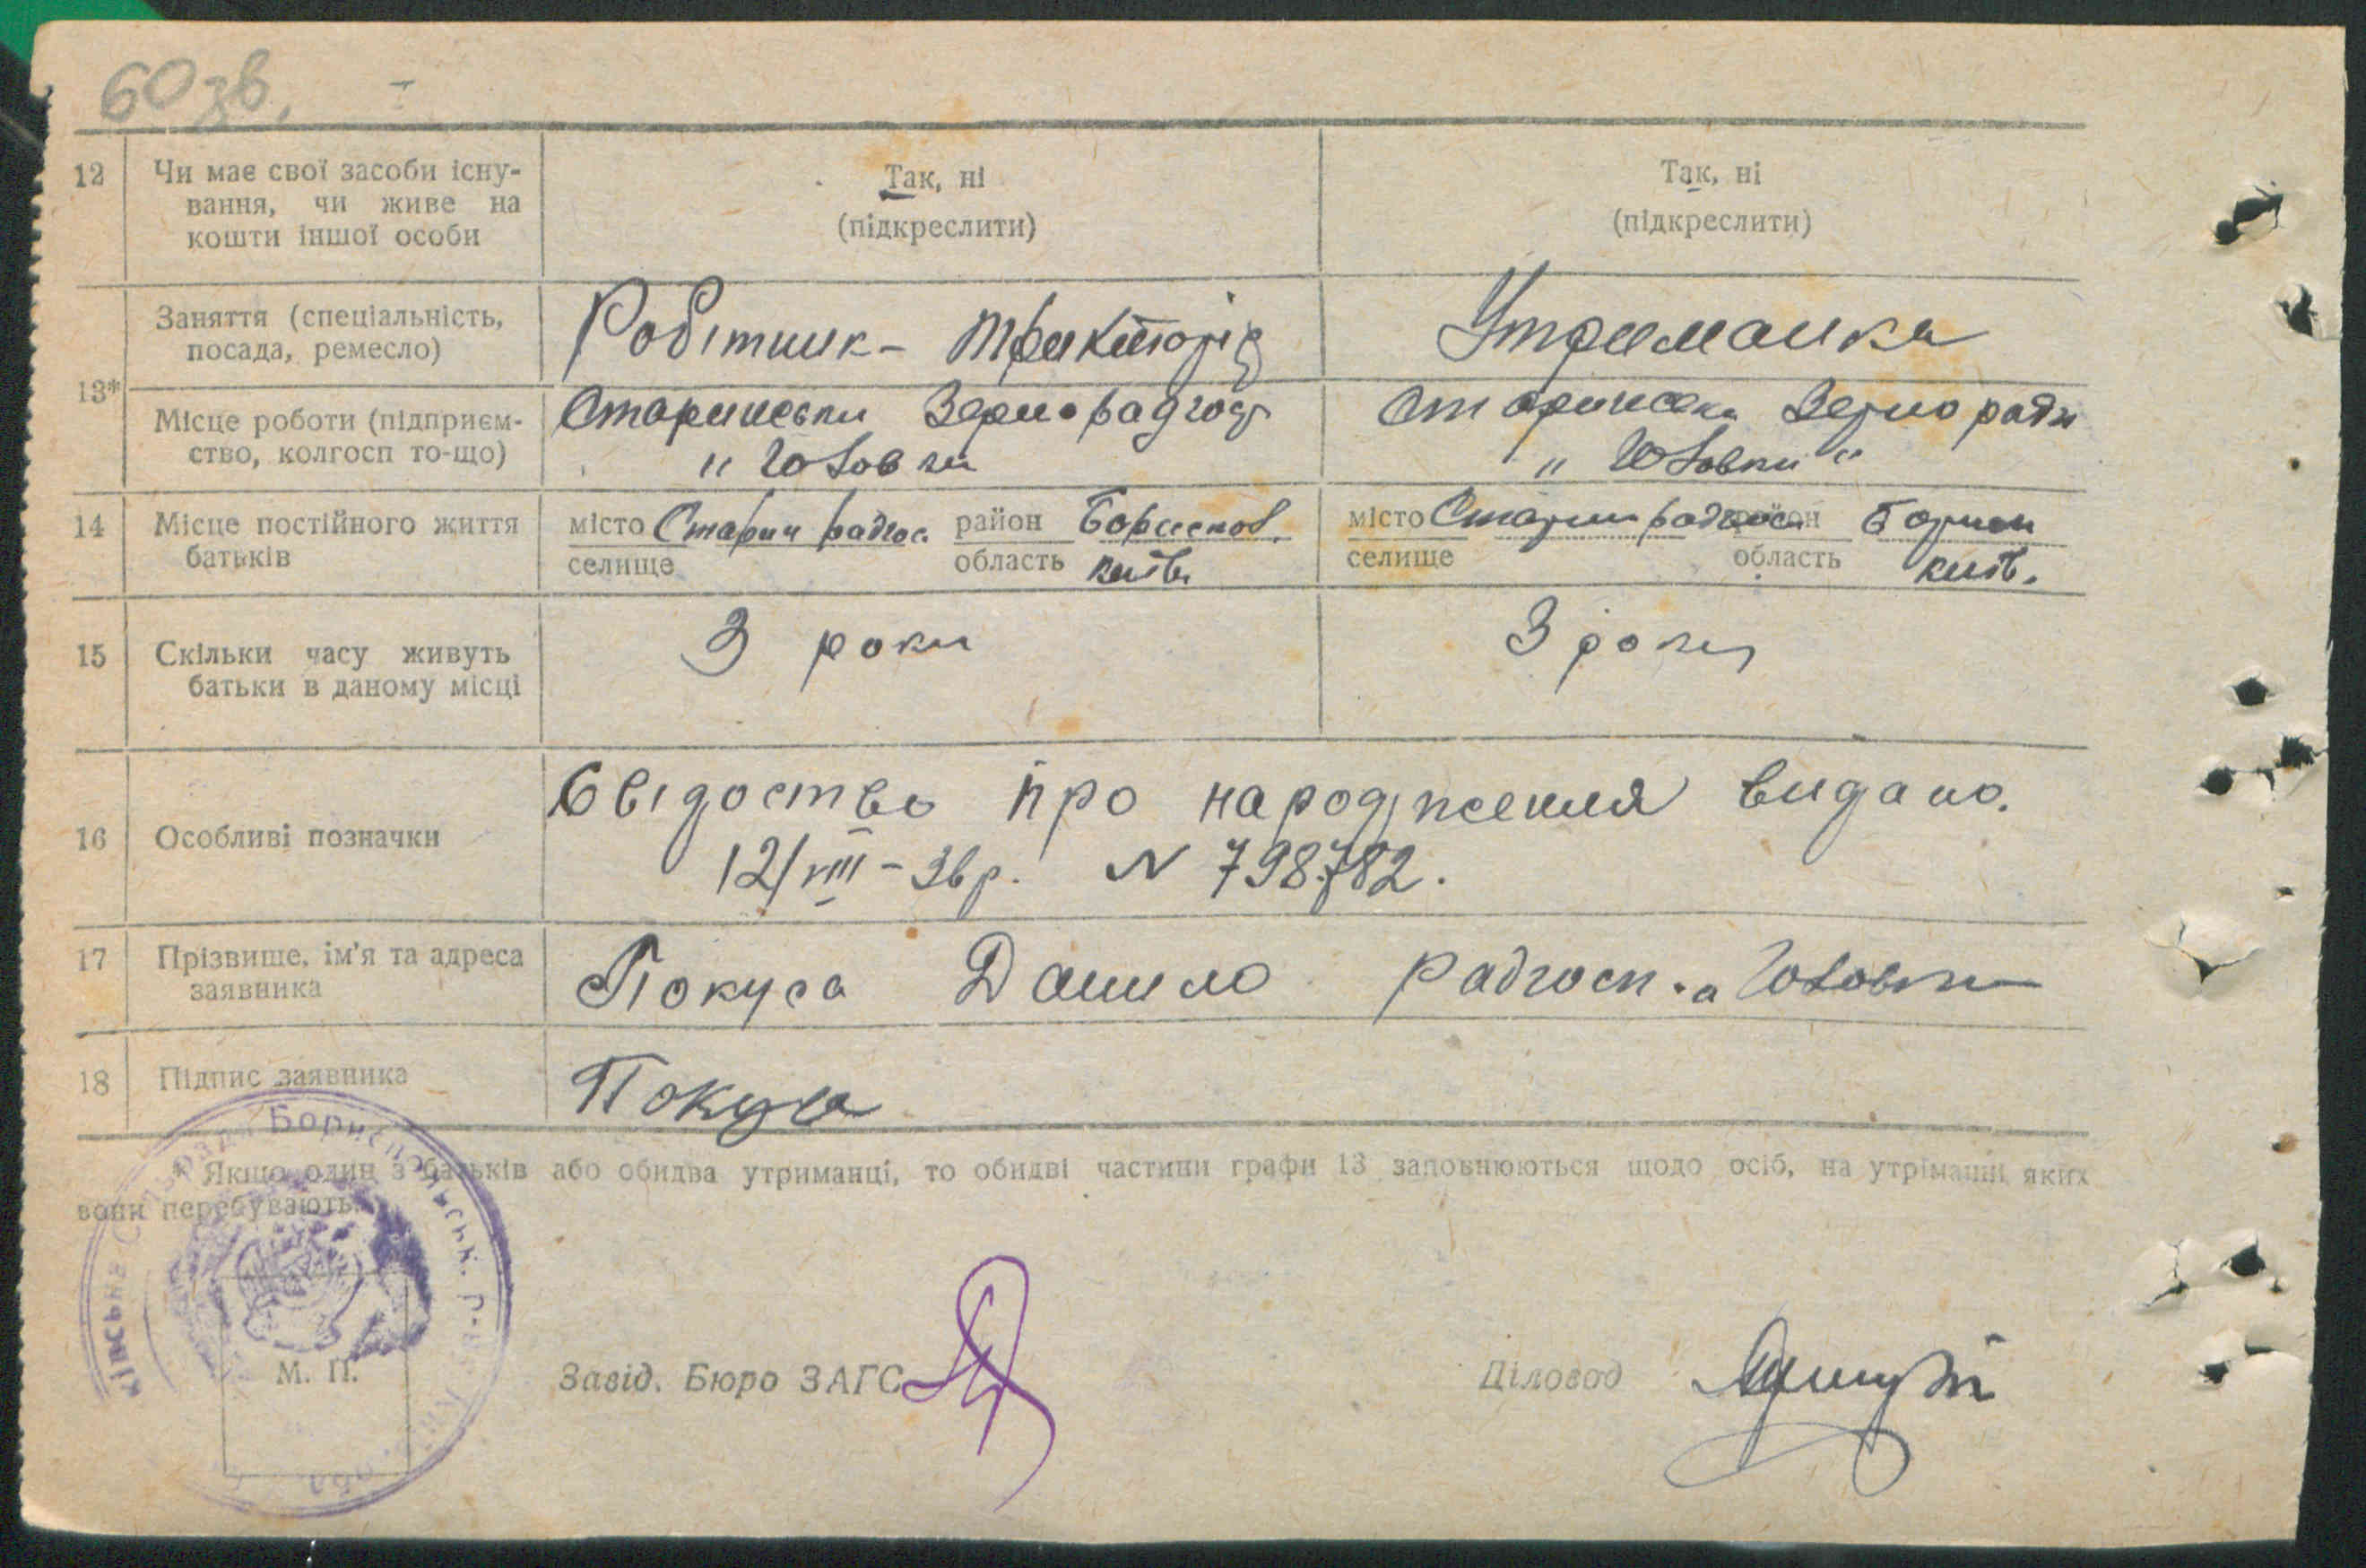 60 зв.
12 Чи має свої засоби існу- Так, ні Так, ні
вання, чи живе на (підкреслити) (підкреслити)
кошти іншої особи
Заняття (спеціальність, Робітник - Утриманка
посада, ремесло)
13*
Місце роботи (підприєм- Старинськи Зернорадгосп
ство, колгосп то-що)
14 Місце постійного життя місто Старин радгос. район Бориспол. місто район
батьків селище область київ селище область київ.
15 Скільки часу живуть 3 роки 3 роки
батьки в даному місці
16 Особливі позначки Свідоство про народження видано.
12/VIII - 36 р. N 798782.
17 Прізвище, ім'я та адреса Покуса Данило радгосп
заявника
18 Підпис заявника Покуса
* Якщо один з батьків або обидва утриманці, то обидві частини графи 13 заповнюються щодо осіб, на утріманні яких
вони перебувають.
М. П.
Завід. Бюро ЗАГС
Діловод